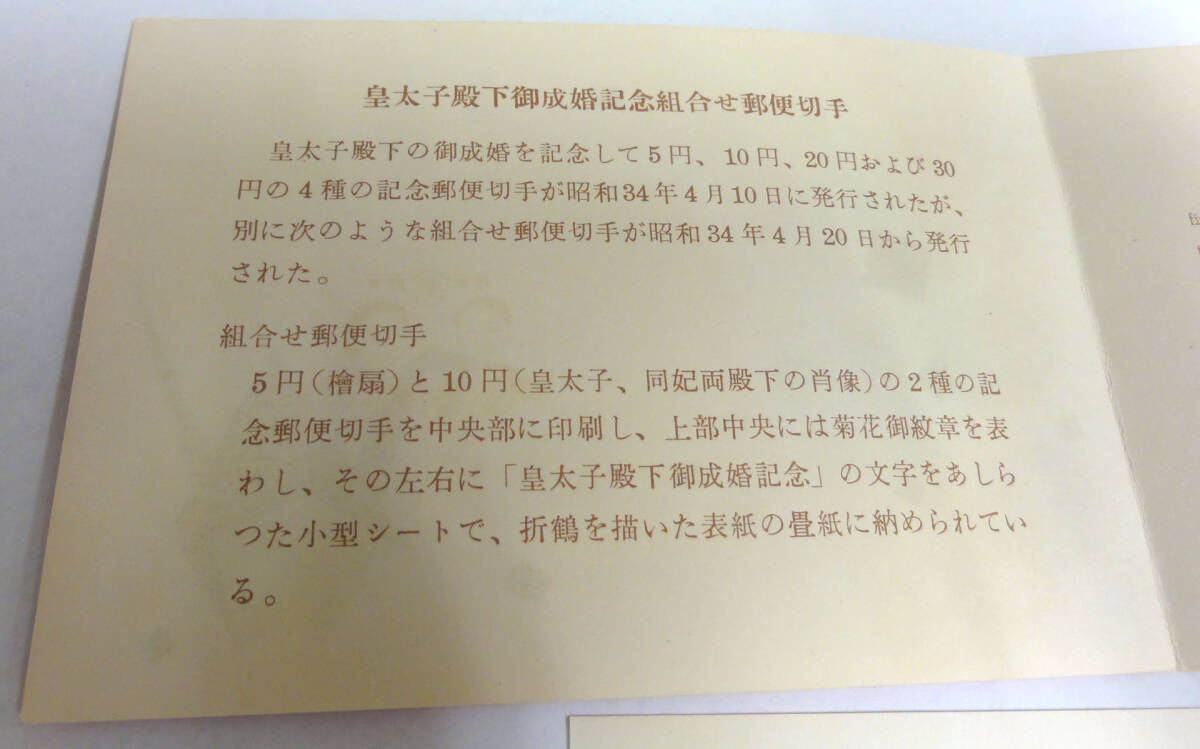 皇太子殿下御成婚記念組合せ郵便切手
皇太子殿下の御成婚を記念して5円、10円、20円および30
円の4種の記念郵便切手が昭和34年4月10日に発行されたが、
別に次のような組合せ郵便切手が昭和34年4月20日から発行
された。
組合せ郵便切手
5円(檜扇)と10円(皇太子、同妃両殿下の肖像)の2種の記
念郵便切手を中央部に印刷し、上部中央には菊花御紋章を表
わし、その左右に「皇太子殿下御成婚記念」の文字をあしら
つた小型シートで、折鶴を描いた表紙の畳紙に納められてい
る。